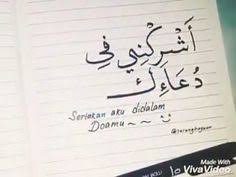 أَشْرِكْنِي فِي
دُعَاءِكَ
Seriakan aku didalam
Doamu~~
Made With
VivaVideo